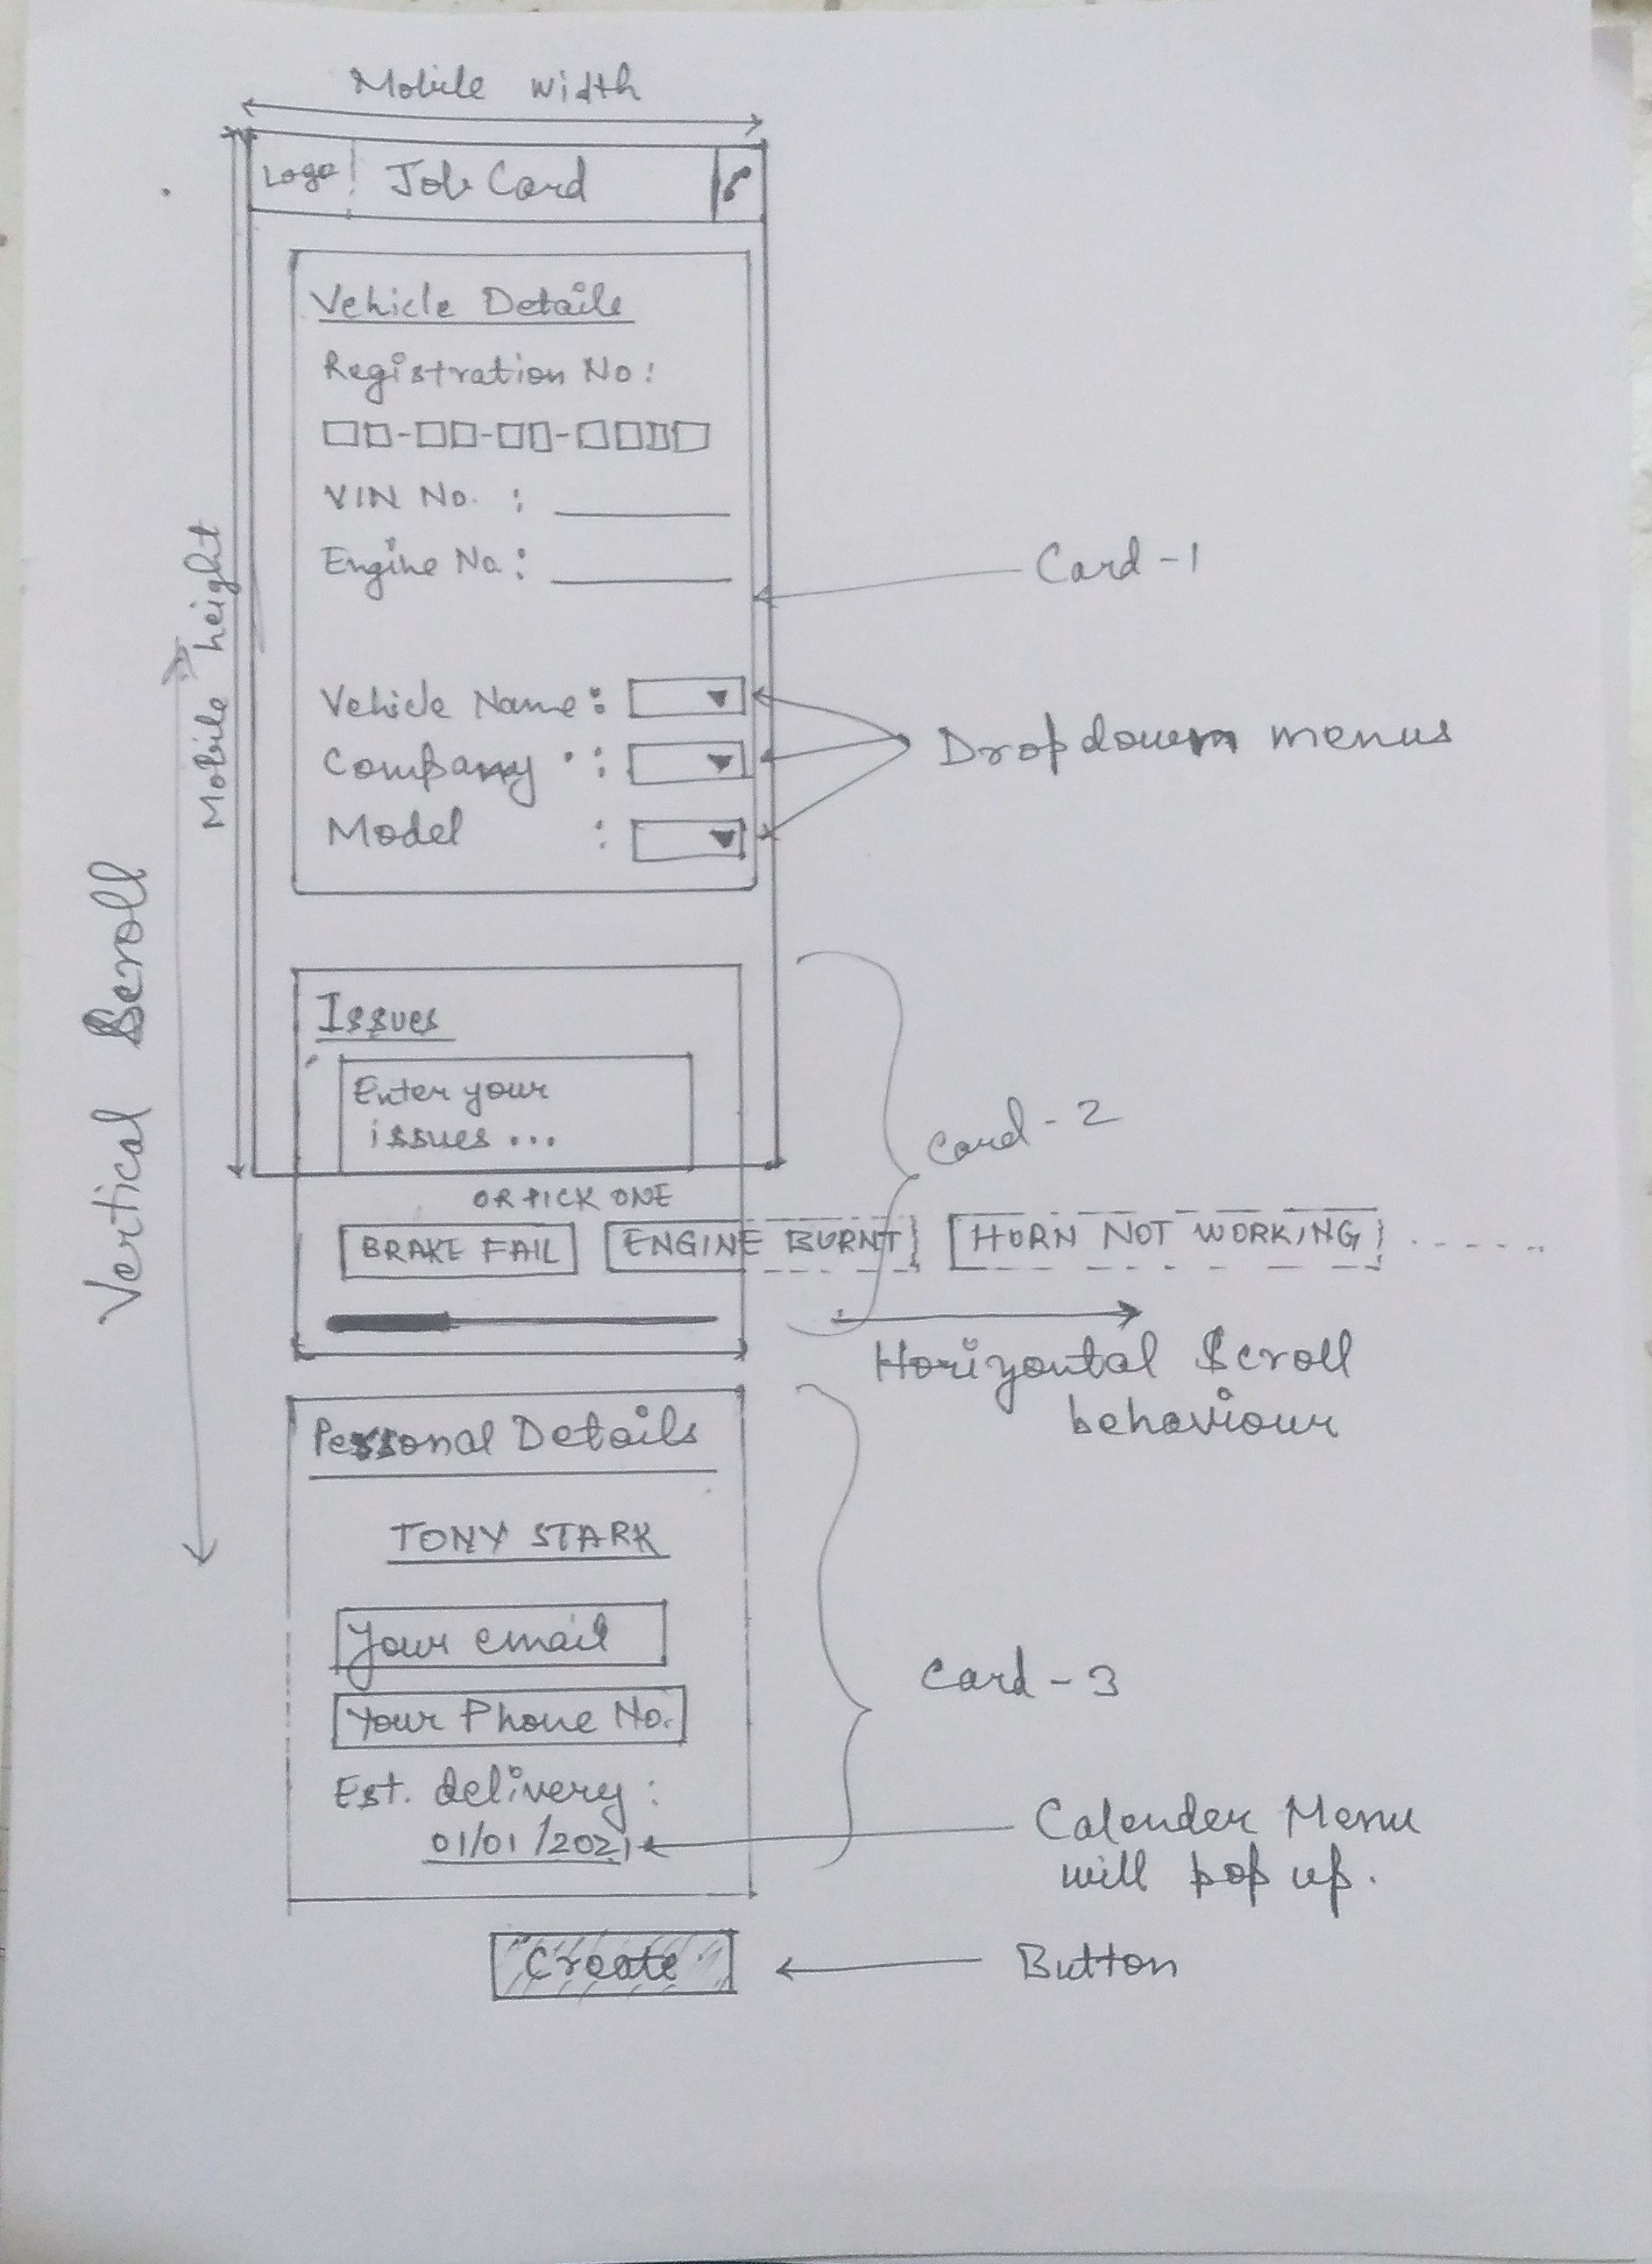 Mobile width
Logo
Job Card
Vehicle Details
Registration No:
VIN No. :
Engine No. :
Card-1
Mobile height
Vehicle Name :
Company :
Model :
Dropdown menus
Vertical Scroll
Issues
Enter your
issues ...
Card-2
OR PICK ONE
BRAKE FAIL
ENGINE BURNT
HORN NOT WORKING
Horizontal Scroll
behaviour
Personal Details
TONY STARK
Your email
Your Phone No.
Card-3
Est. delivery :
01/01/2021
Calender Menu
will pop up.
Create
Button